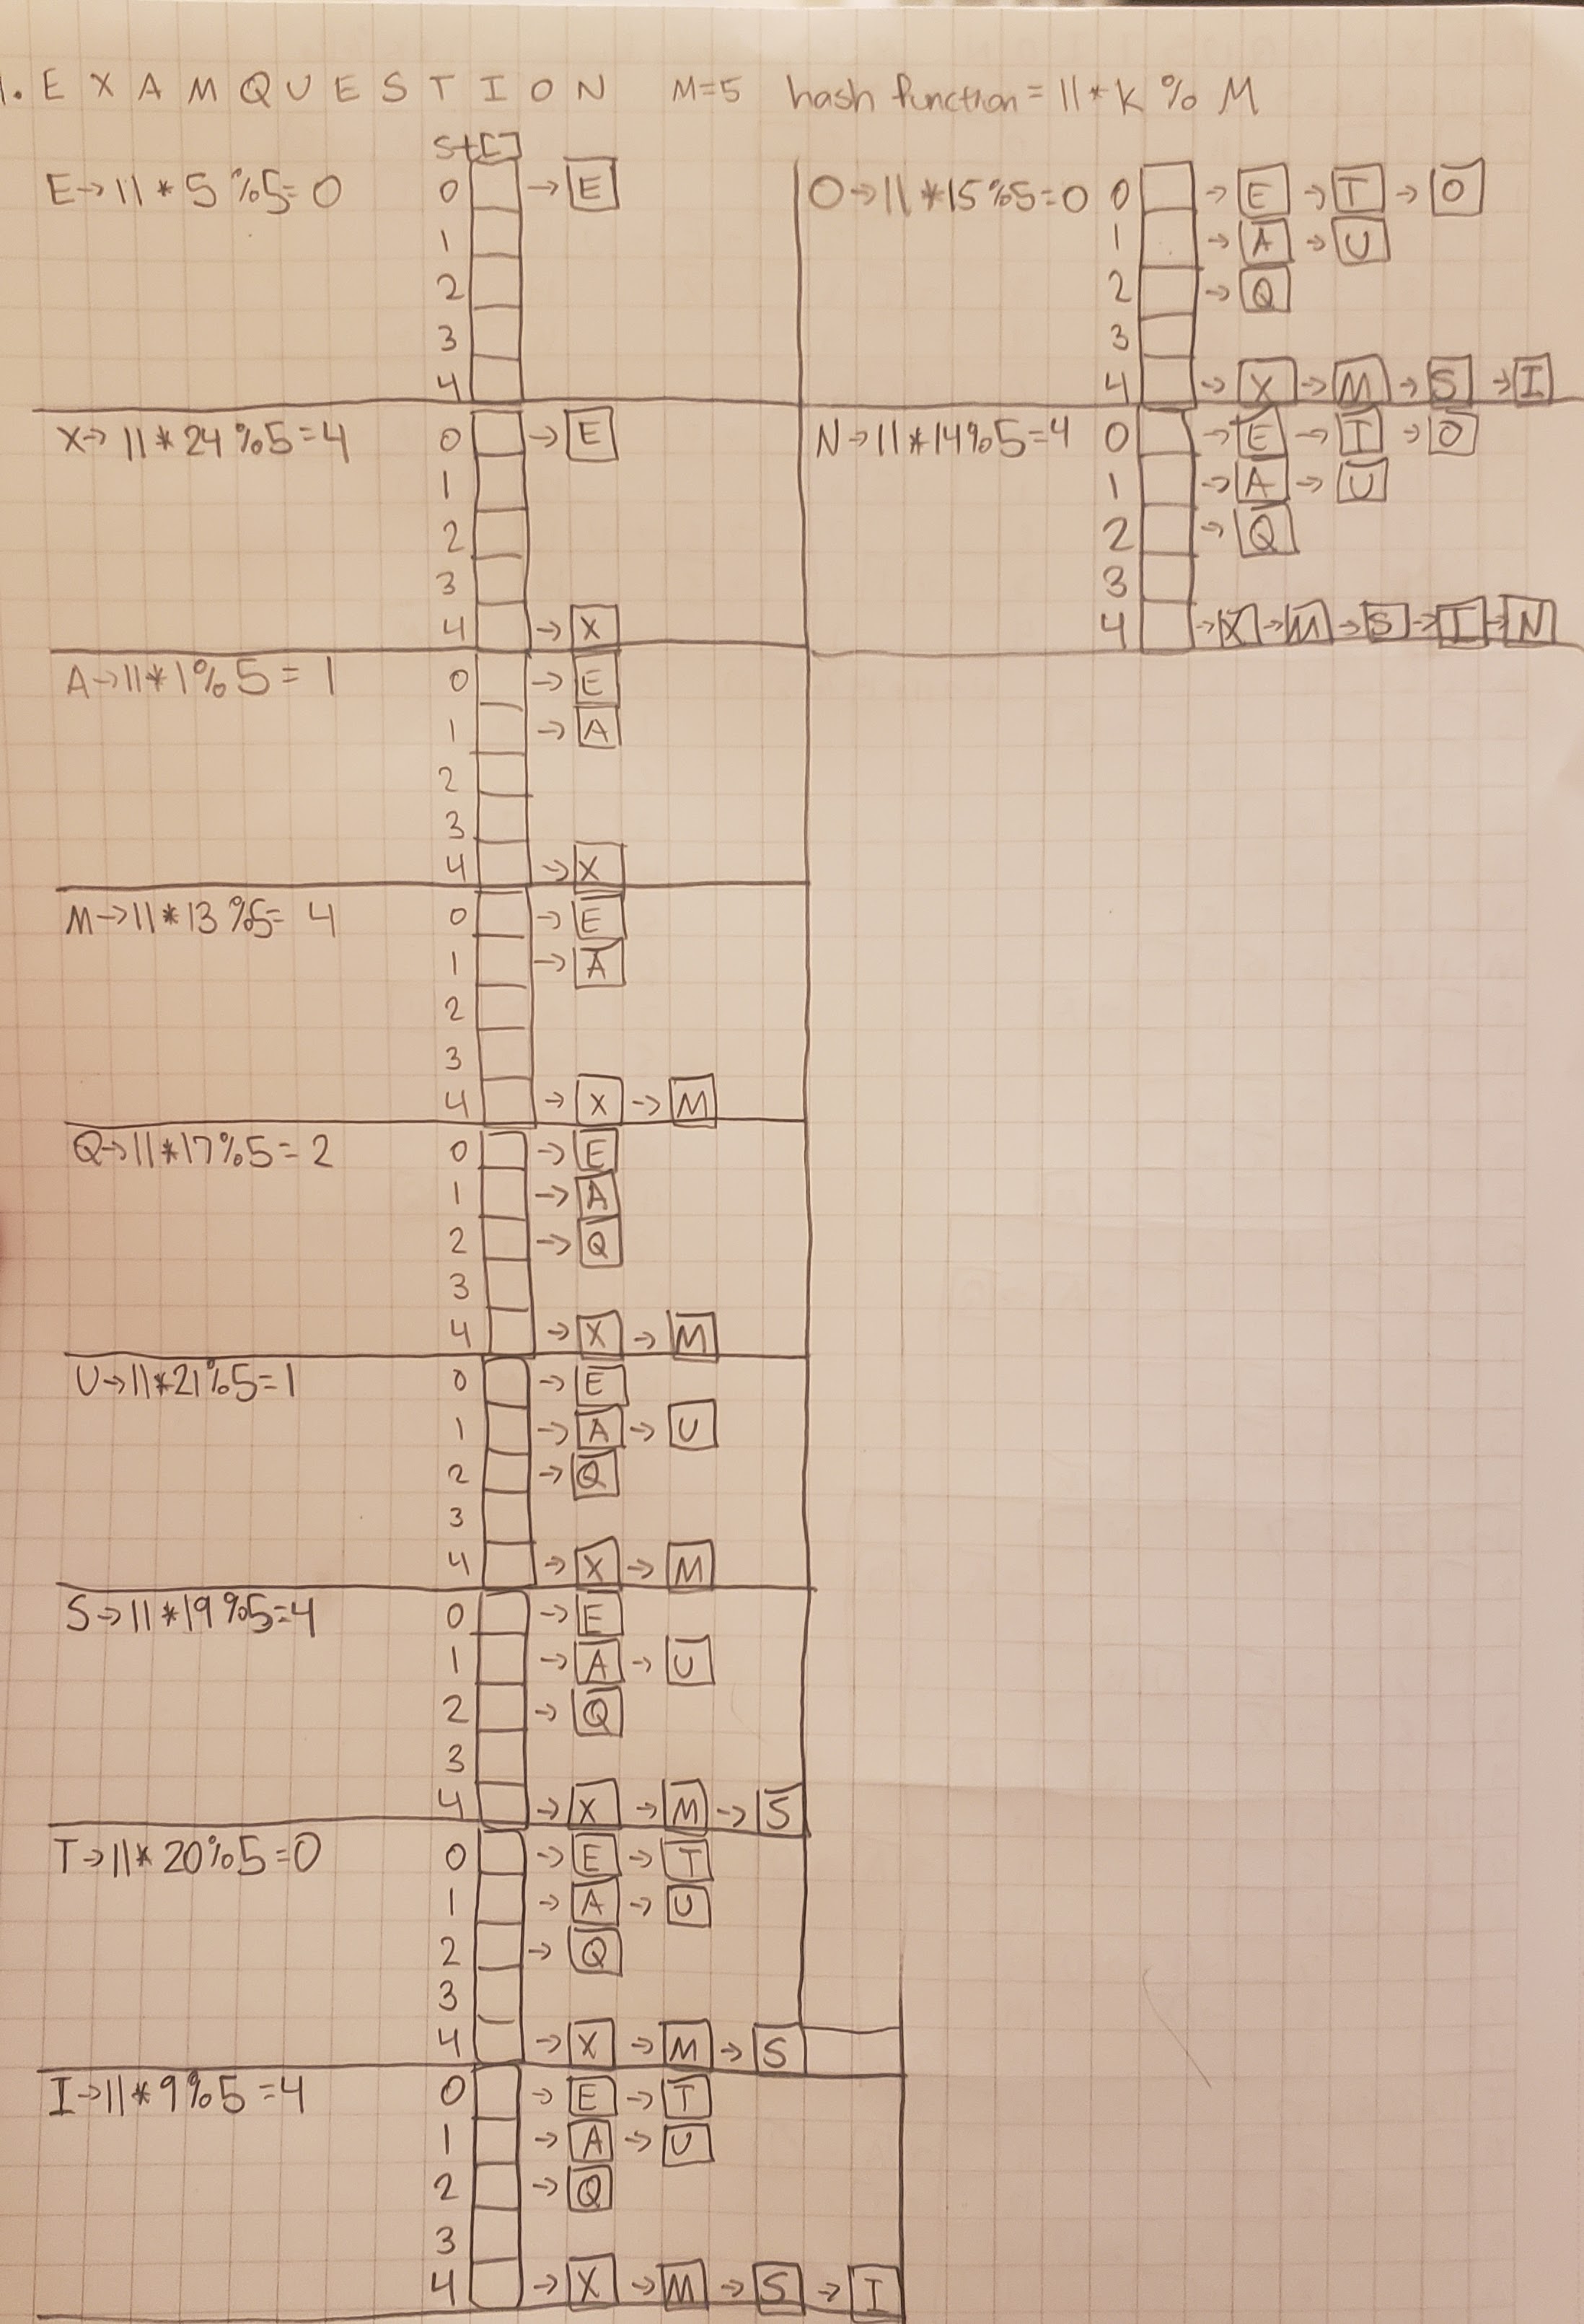 1. E X A M Q U E S T I O N M=5 hash function = 11 * k % M
st[]
E→ 11 * 5 % 5 = 0
0 → E
1
2
3
4
X→ 11 * 24 % 5 = 4
0 → E
1
2
3
4 → X
A→ 11 * 1 % 5 = 1
0 → E
1 → A
2
3
4 → X
M→ 11 * 13 % 5 = 4
0 → E
1 → A
2
3
4 → X → M
Q→ 11 * 17 % 5 = 2
0 → E
1 → A
2 → Q
3
4 → X → M
U→ 11 * 21 % 5 = 1
0 → E
1 → A → U
2 → Q
3
4 → X → M
S→ 11 * 19 % 5 = 4
0 → E
1 → A → U
2 → Q
3
4 → X → M → S
T→ 11 * 20 % 5 = 0
0 → E → T
1 → A → U
2 → Q
3
4 → X → M → S
I→ 11 * 9 % 5 = 4
0 → E → T
1 → A → U
2 → Q
3
4 → X → M → S → I
O→ 11 * 15 % 5 = 0
0 → E → T → O
1 → A → U
2 → Q
3
4 → X → M → S → I
N→ 11 * 14 % 5 = 4
0 → E → I → O
1 → A → U
2 → Q
3
4 → X → M → S → I → N